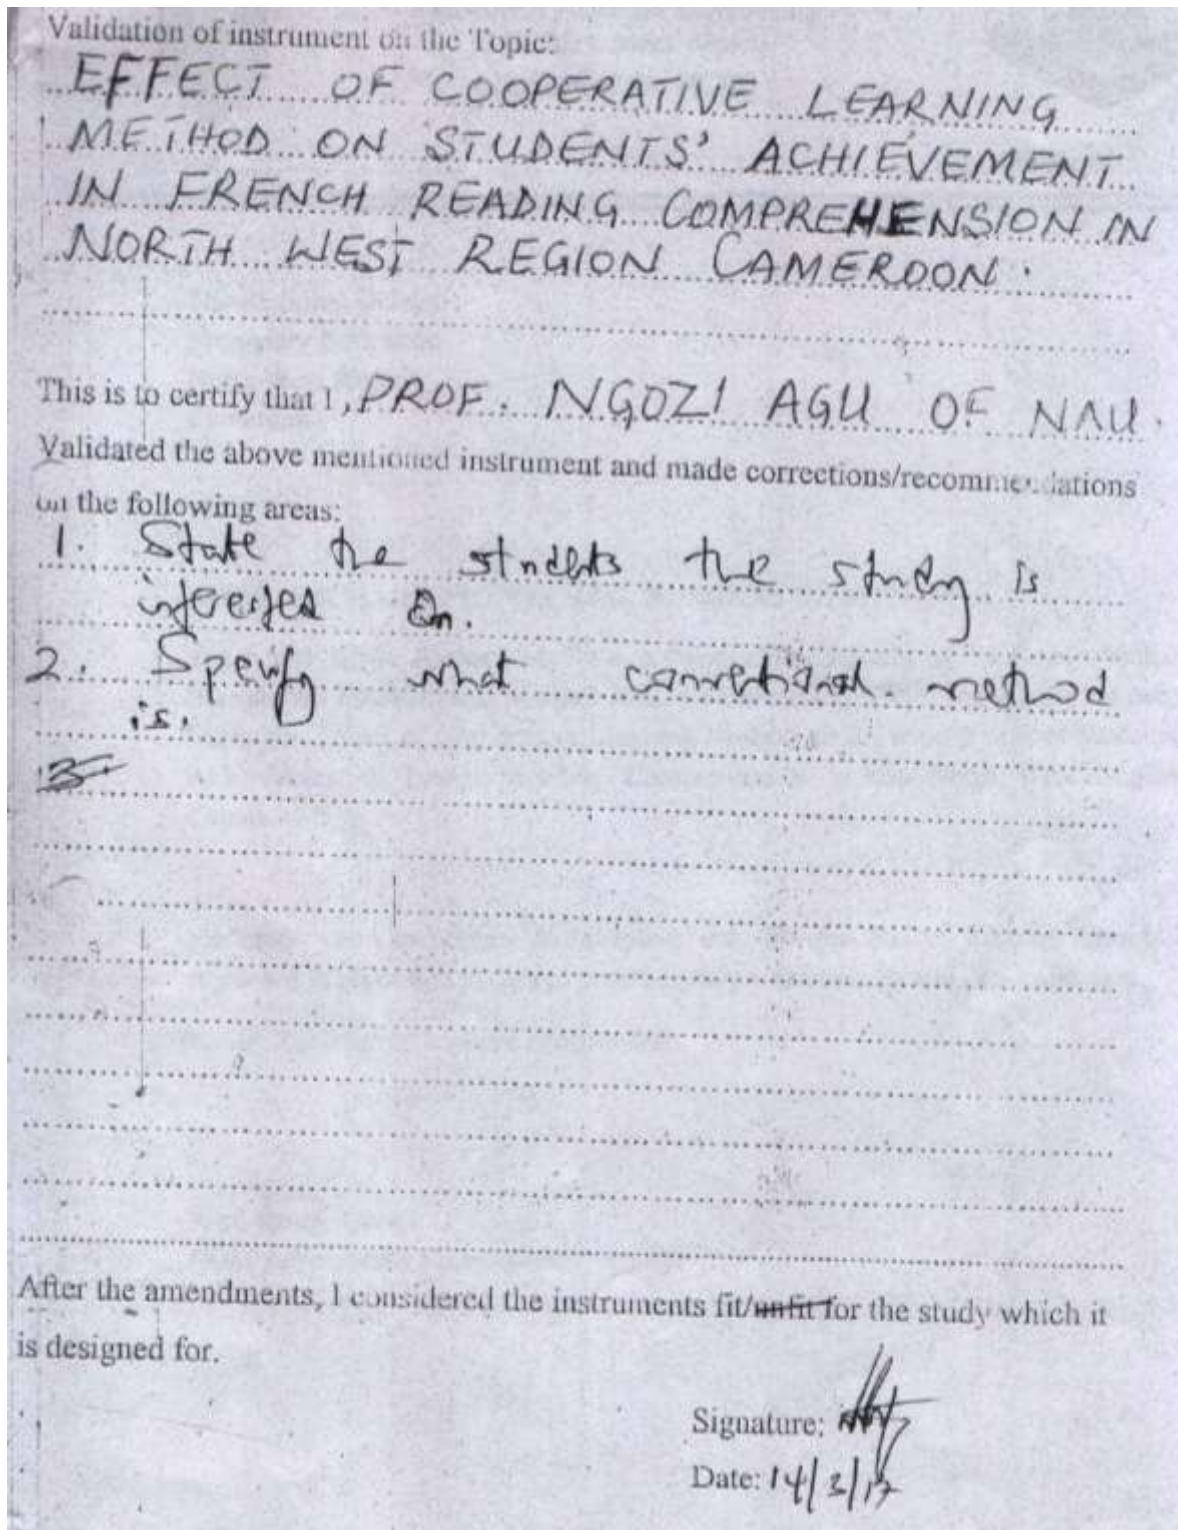 Validation of instrument on the Topic:
EFFECT OF COOPERATIVE LEARNING
METHOD ON STUDENTS' ACHIEVEMENT
IN FRENCH READING COMPREHENSION IN
NORTH WEST REGION CAMEROON.
This is to certify that I, PROF. NGOZI AGU OF NAU.
Validated the above mentioned instrument and made corrections/recommendations
on the following areas:
1. State the students the study is
on.
2. Specify what conventional method
is.
3
After the amendments, I considered the instruments fit/unfit for the study which it
is designed for.
Signature:
Date: 14/3/17